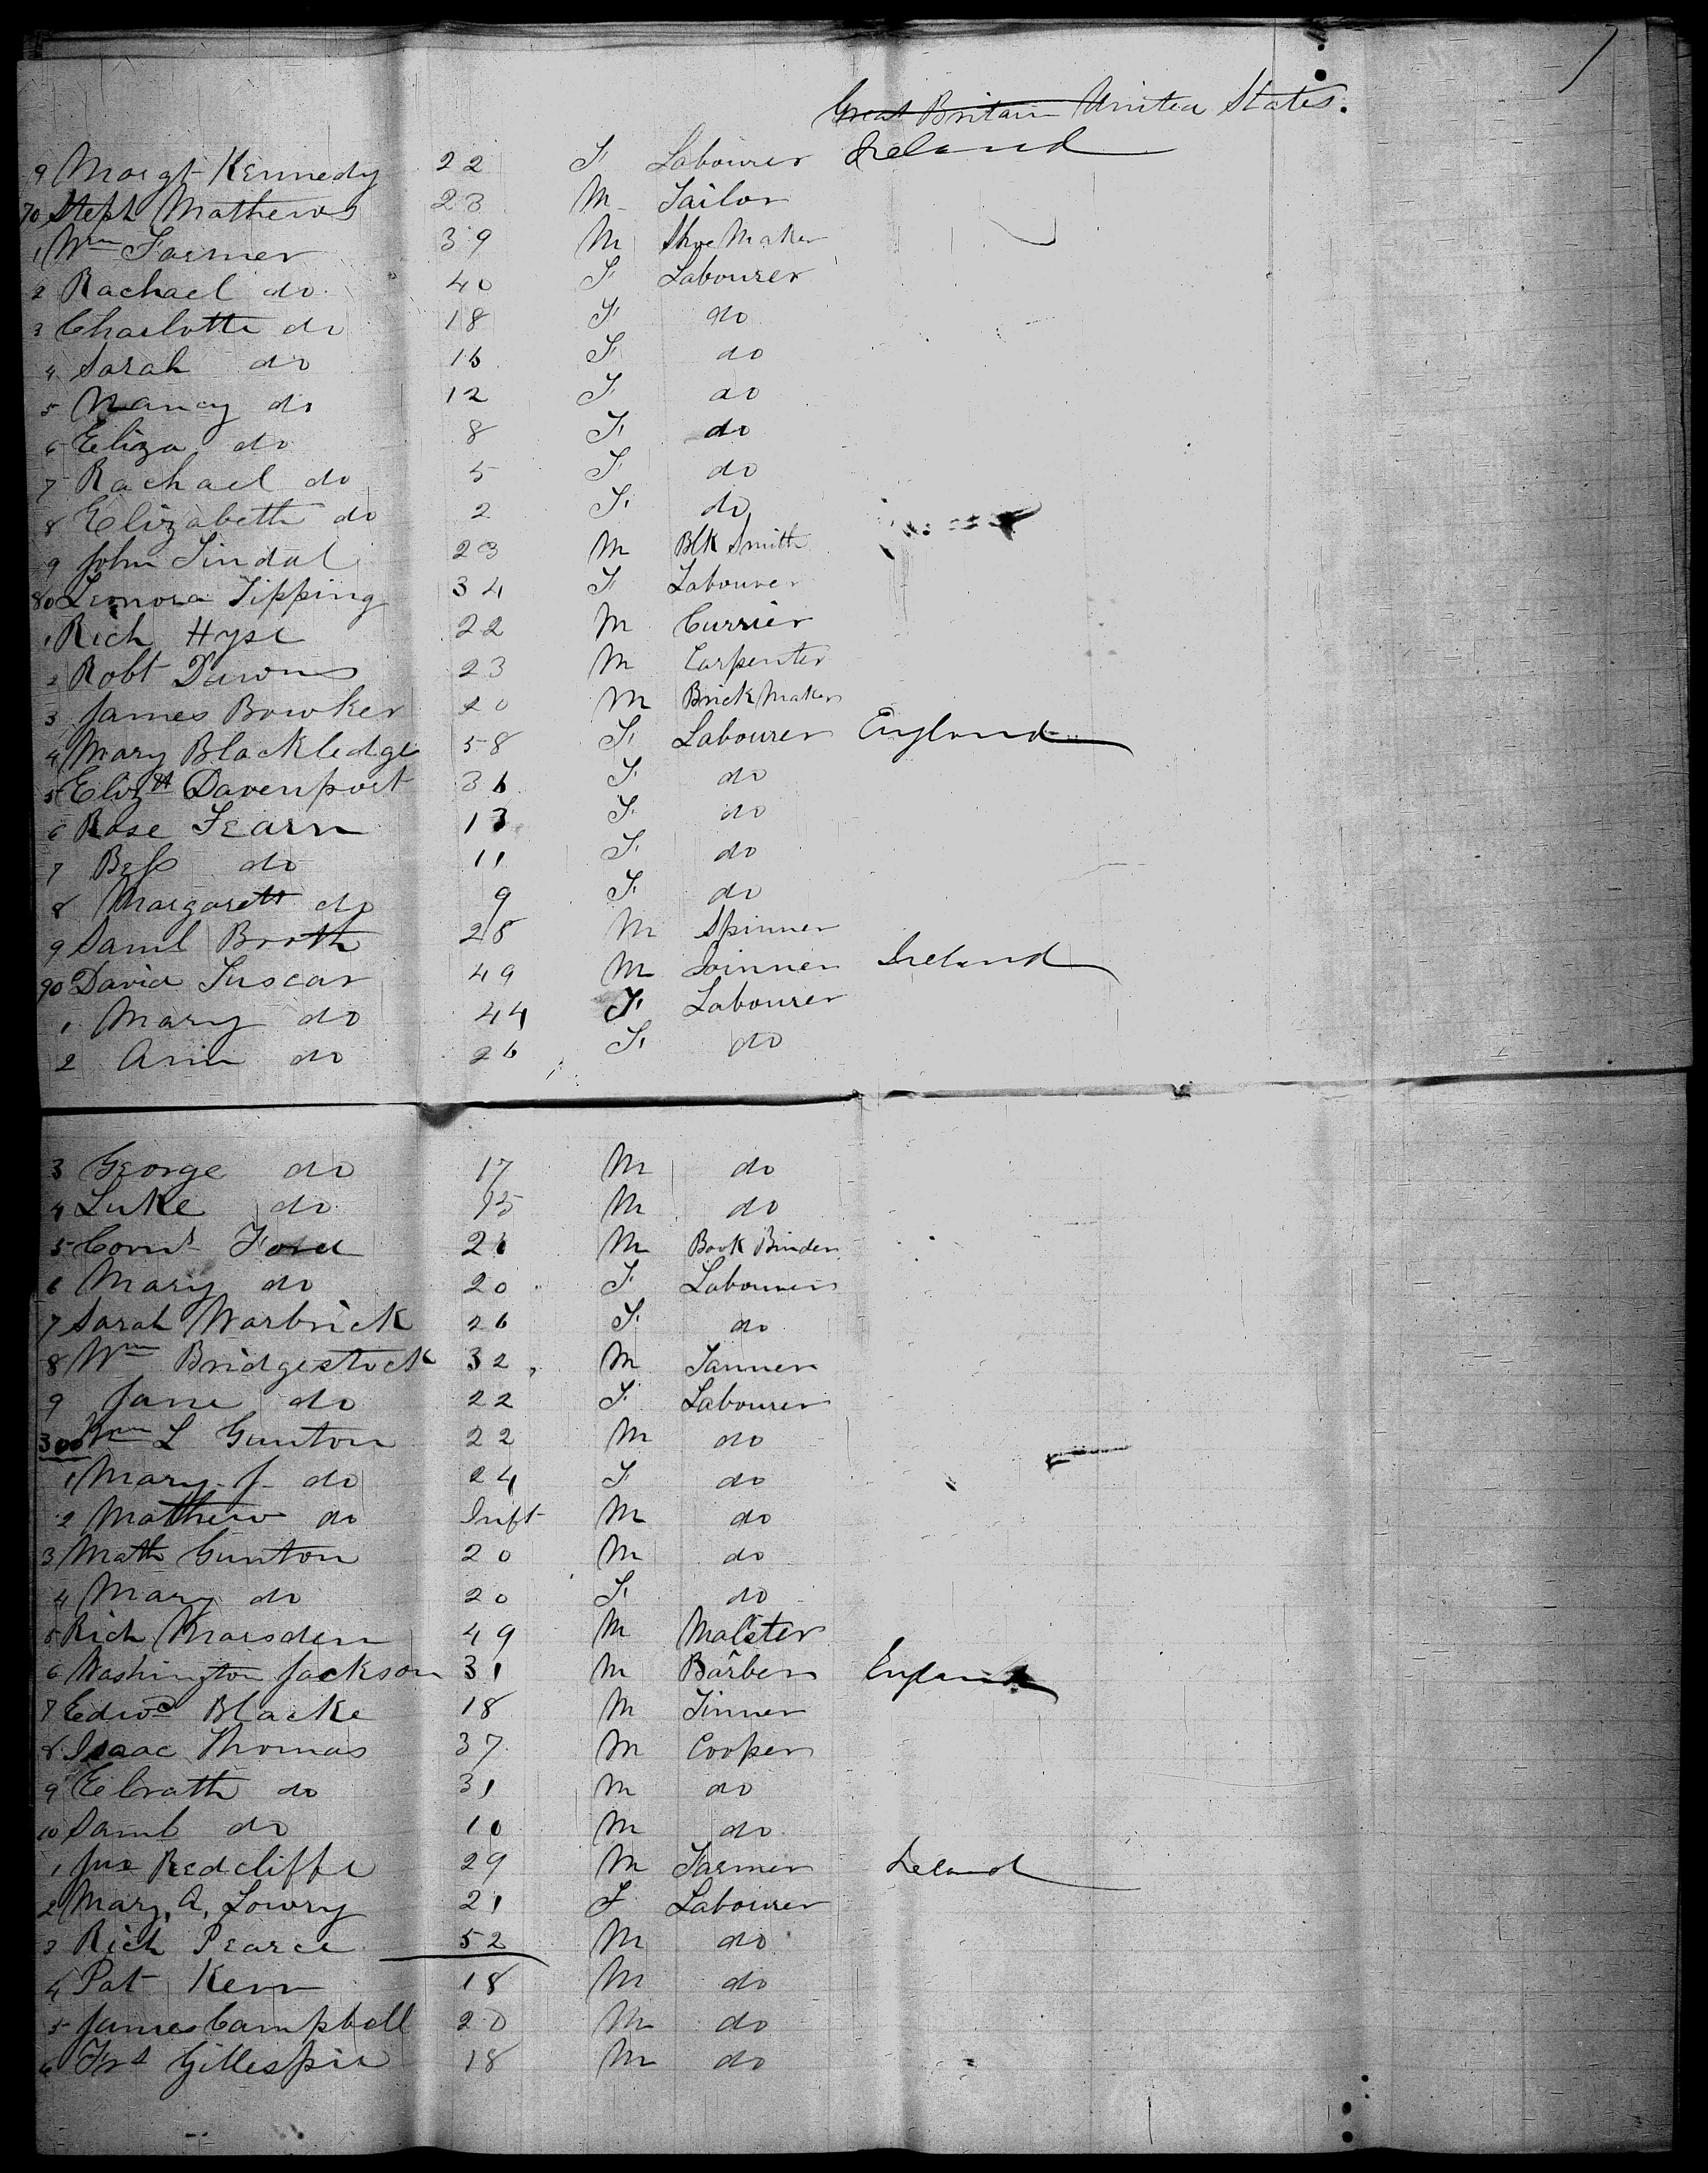 Great Britain United States.
9 Margt Kennedy 22 F Labourer Ireland
70 Steph Mathews 23 M Tailor
1 Wm Farmer 39 M Shoe Maker
2 Rachael do 40 F Labourer
3 Charlotte do 18 F do
4 Sarah do 16 F do
5 Nancy do 12 F do
6 Eliza do 8 F do
7 Rachael do 5 F do
8 Elizabeth do 2 F do
9 John Tindal 23 M Blk Smith
80 Leonora Tipping 34 F Labourer
1 Rich Hyse 22 M Currier
2 Robt 23 M Carpenter
3 James Bowker 20 M Brick Maker
4 Mary Blackledge 58 F Labourer England
5 Elizth Davenport 36 F do
6 Rose Fearn 13 F do
7 Bess do 11 F do
8 Margarett do 9 F do
9 Saml Broth 28 M Spinner
90 David Tuscar 49 M Ireland
1 Mary do 44 F Labourer
2 Ann do 26 F do
3 George do 17 M do
4 Luke do 15 M do
5 Ford 21 M Book Binder
6 Mary do 20 F Labourer
7 Sarah Warbrick 26 F do
8 Wm Bridgestock 32 M Tanner
9 Jane do 22 F Labourer
300 Wm L Gunton 22 M do
1 Mary J do 24 F do
2 Mathew do Inft M do
3 Math Gunton 20 M do
4 Mary do 20 F do
5 Rich Marsden 49 M Malster
6 Washington Jackson 31 M Barber England
7 Edwd Blacke 18 M Tinner
8 Isaac Thomas 37 M Cooper
9 do 31 M do
10 Saml do 10 M do
1 Redcliffe 29 M Farmer Ireland
2 Mary, A, Lowry 21 F Labourer
3 Rich Pearce 52 M do
4 Pat Kerr 18 M do
5 James Campbell 20 M do
6 Frs Gillespie 18 M do